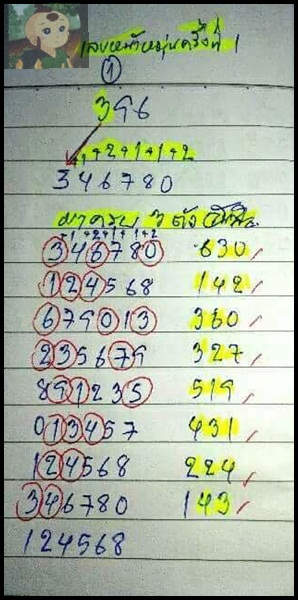 เลขหน้าหมุนครั้งที่ 1
1
396
+1+2+1+1+2
346780
มาครบ 3 ตัว
+1+2+1+1+2
346780 630
124568 142
679013 360
235679 327
891235 519
013457 431
124568 224
346780 143
124568